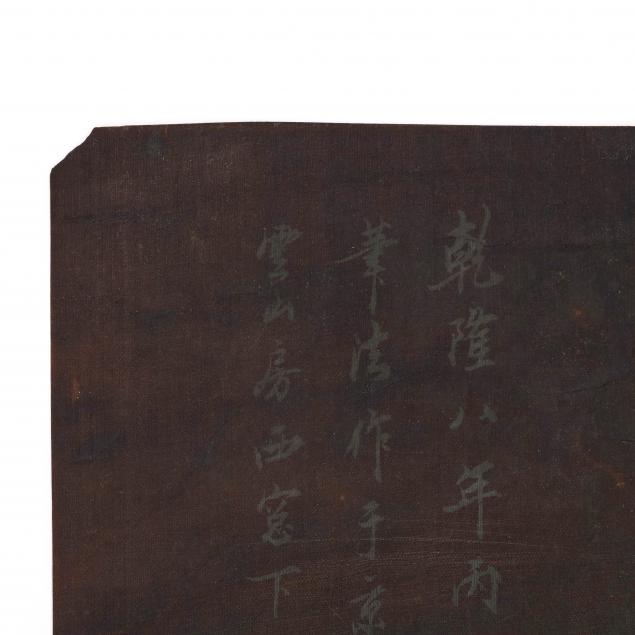 乾隆八年丙
筆法作于京
雲山房西窓下